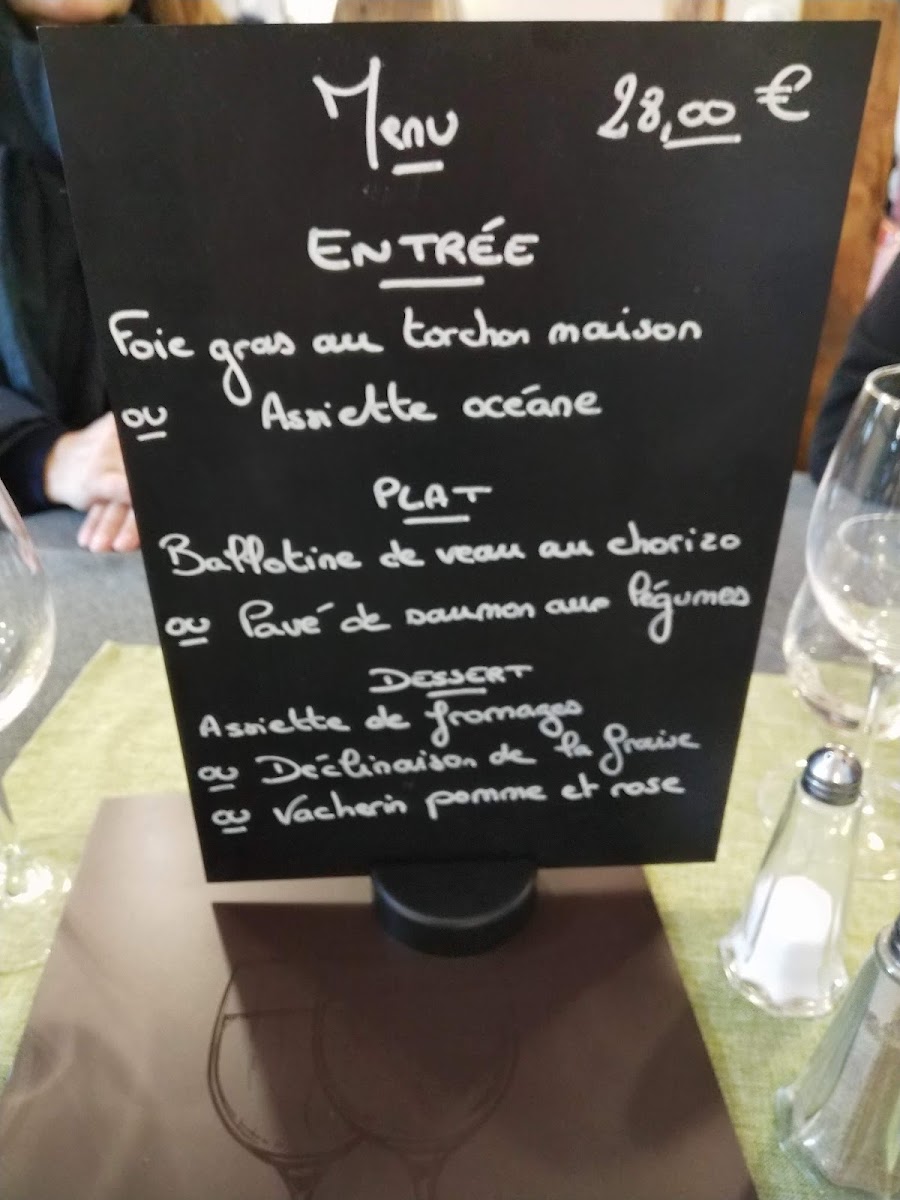 Menu 28,00 €
ENTRÉE
Foie gras au torchon maison
ou Assiette océane
PLAT
Ballotine de veau au chorizo
ou Pavé de saumon aux légumes
DESSERT
Assiette de fromages
ou Déclinaison de la fraise
ou Vacherin pomme et rose